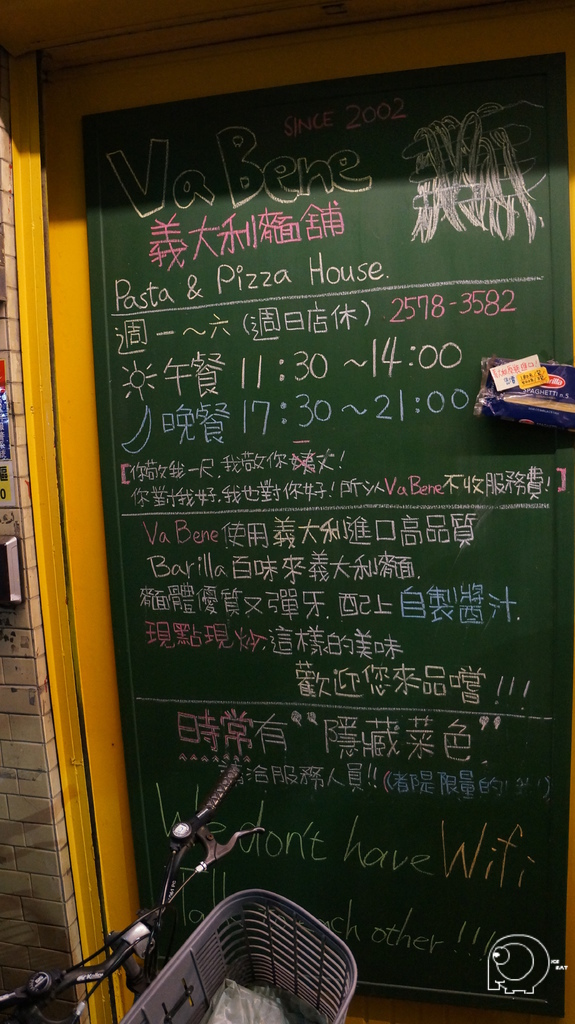 SINCE 2002
Va Bene
義大利麵舖
Pasta & Pizza House.
週一～六 (週日店休) 2578-3582
午餐 11:30～14:00
晚餐 17:30～21:00
[你敬我一尺, 我敬你一丈!
你對我好, 我也對你好! 所以 Va Bene 不收服務費!]
Va Bene 使用義大利進口高品質
Barilla 百味來義大利麵.
麵體優質又彈牙. 配上 自製醬汁.
現點現炒. 這樣的美味
歡迎您來品嚐!!!
時常有“隱藏菜色”
洽服務人員!! (都是限量的
We don't have Wifi
Talk each other!!!
Barilla
SPAGHETTI n.5
ICE
EAT